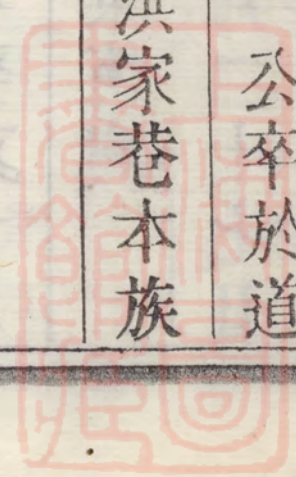 公卒於道
洪家巷本族